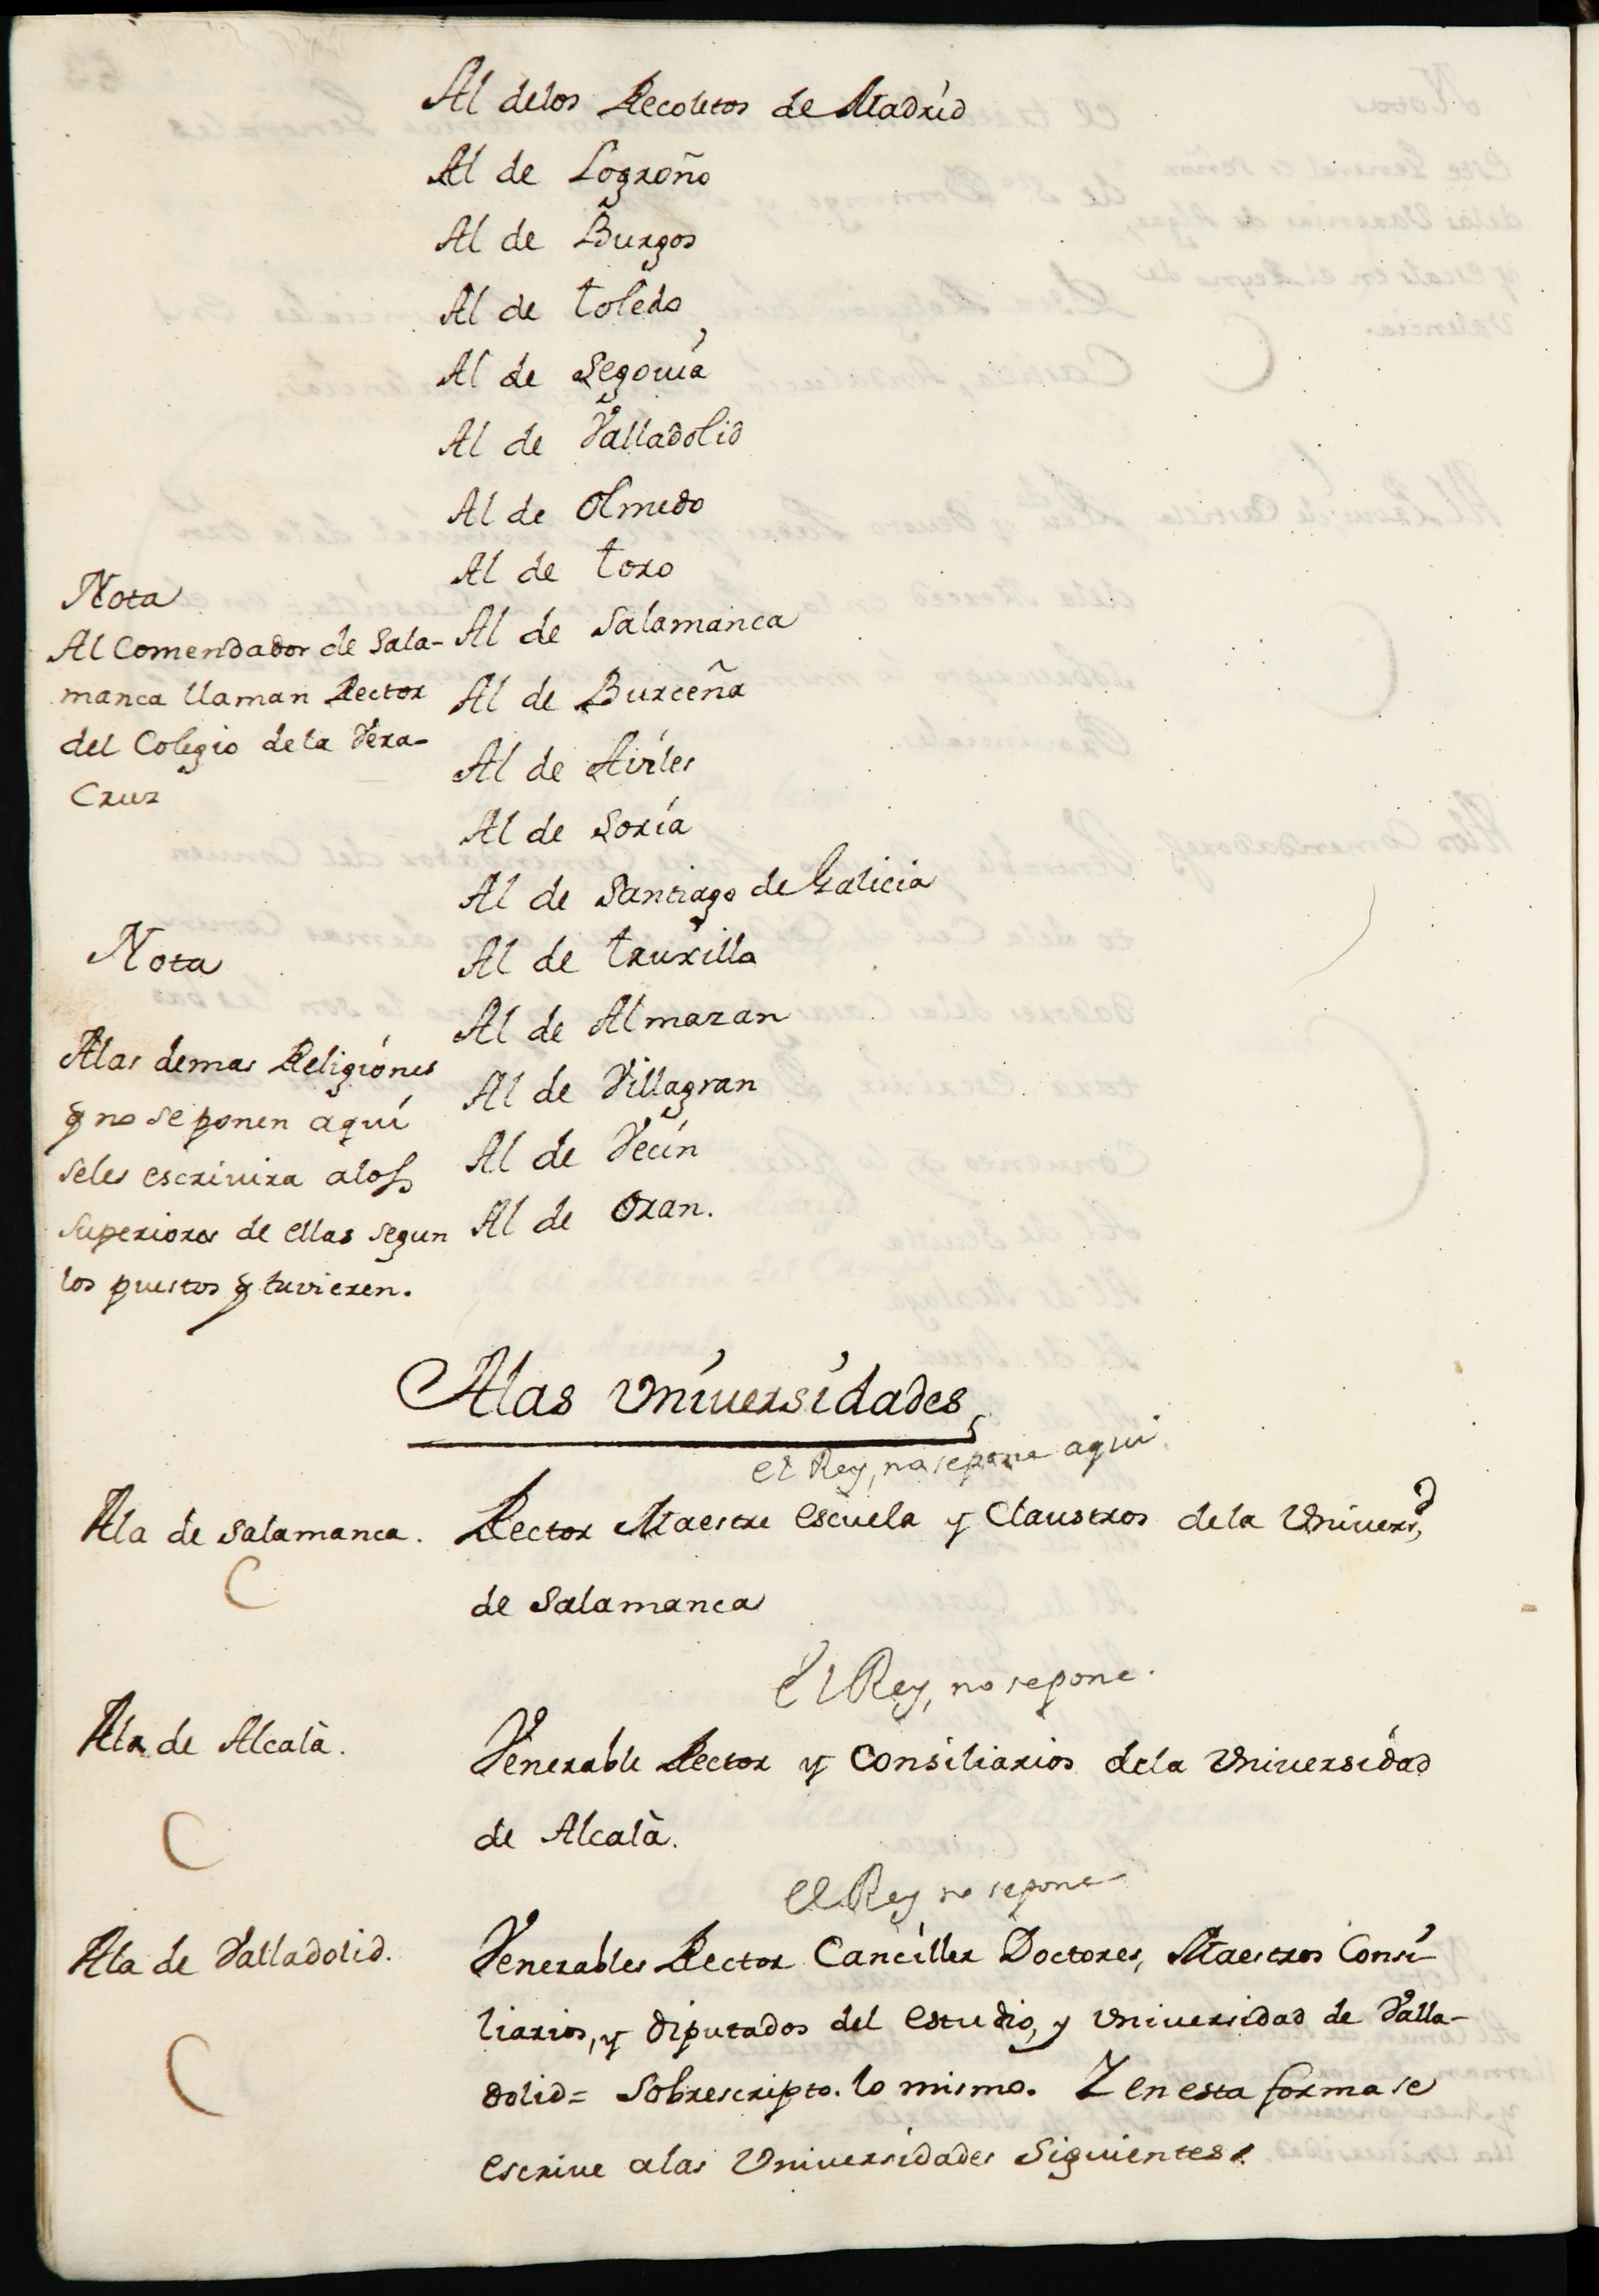 Al delos Recoletos de Madrid
Al de Logroño
Al de Burgos
Al de toledo
Al de Segouia
Al de Valladolid
Al de Olmedo
Al de toro
Al de Salamanca
Al de Burceña
Al de Soria
Al de Santiago de Galicia
Al de truxillo
Al de Almazan
Al de Villagran
Al de Vecin
Al de Oran.
Nota
Al Comendador de Sala-
manca llaman Rector
del Colegio dela Vera-
Cruz
Nota
Alas demas Religiones
q no se ponen aqui
seles escriuira alos
superiores de ellas segun
los puestos q tuvieren.
Alas Vniuersidades
el Rey, no se pone aqui
Ala de Salamanca.
Rector Maestre escuela y Claustros dela Vniuersd
de Salamanca
El Rey, no se pone.
Ala de Alcalà.
Venerable Rector y Consiliarios dela Vniuersidad
de Alcalà.
el Rey no se pone
Ala de Valladolid.
Venerables Rector Canciller Doctores, Maestros Consi-
liarios, y diputados del estudio, y Vniuersidad de Valla-
dolid = Sobrescripto. lo mismo. Y en esta forma se
escriue alas Vniuersidades Siguientes.